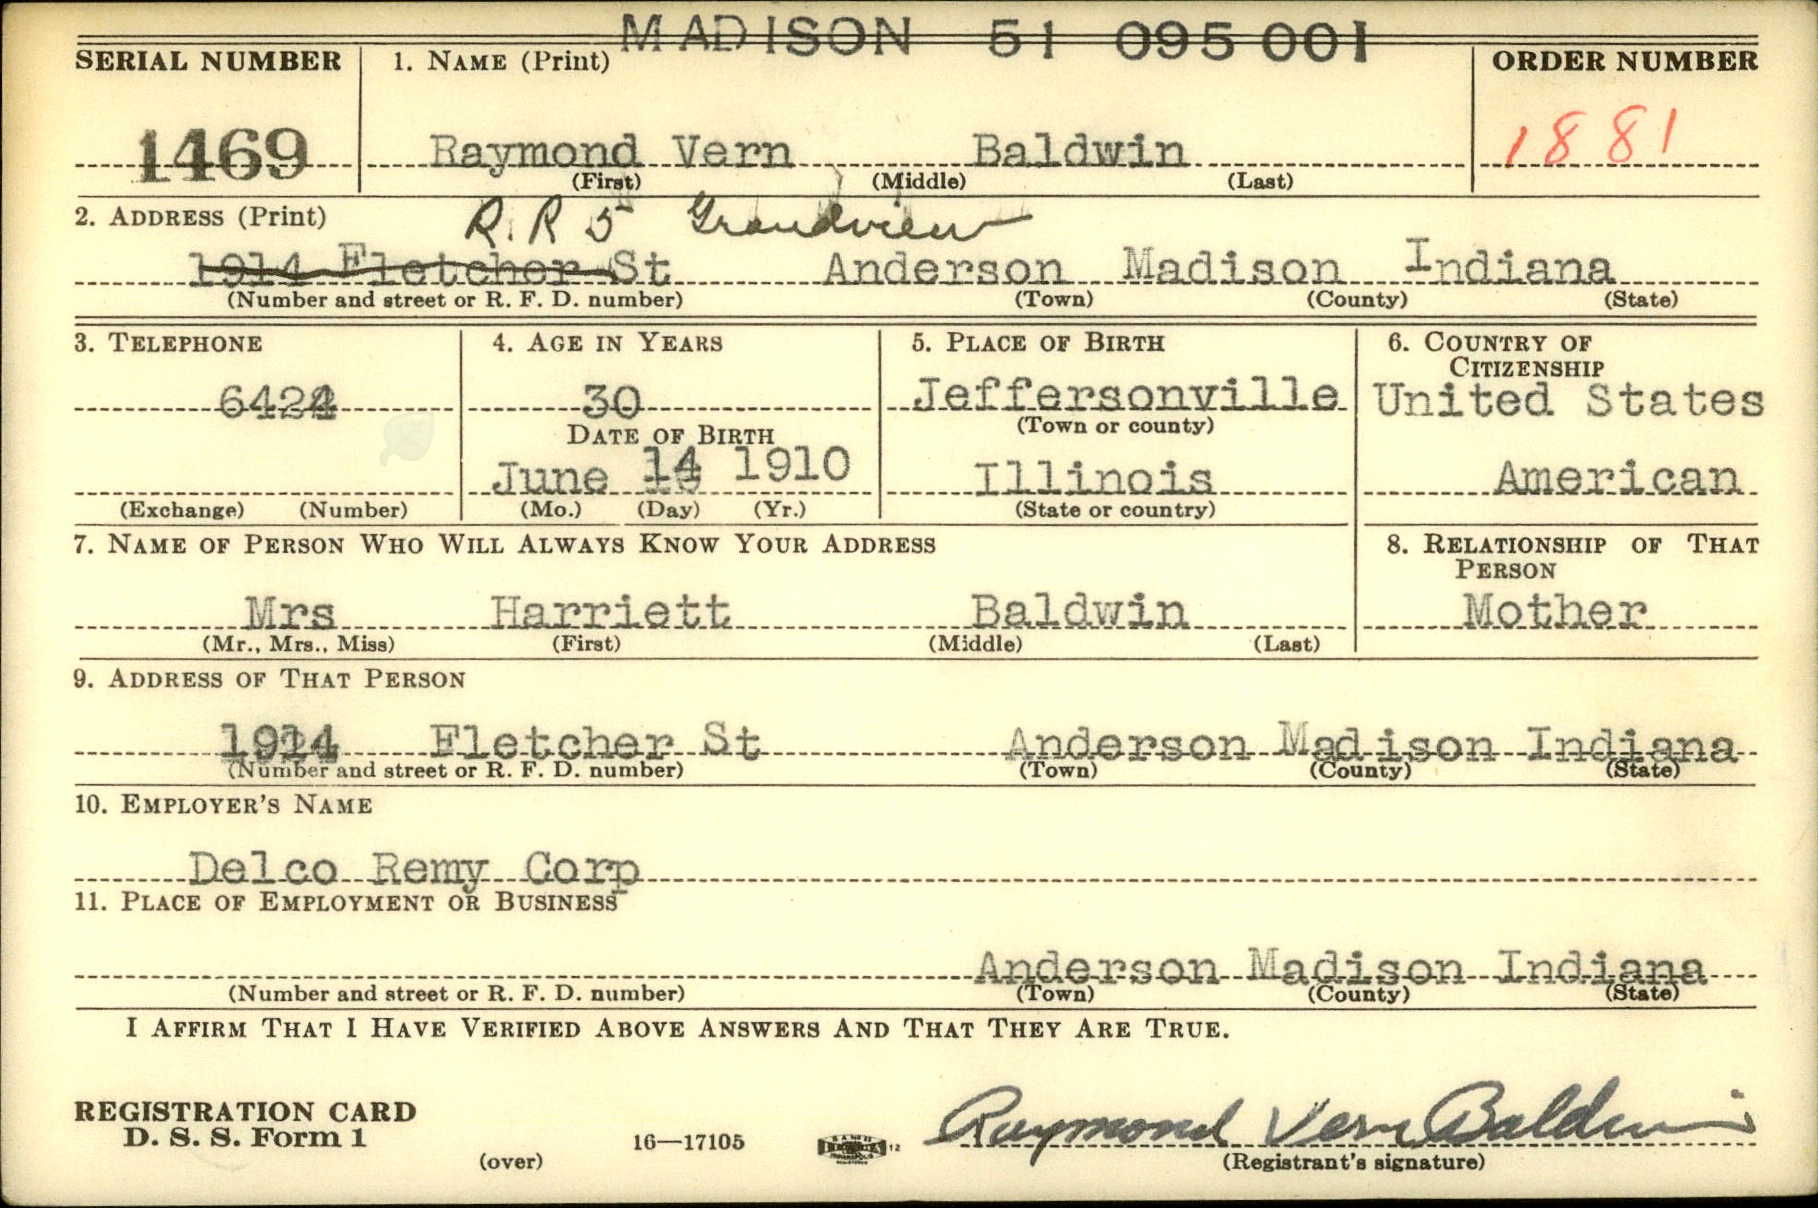 MADISON 51 095 001
SERIAL NUMBER 1. NAME (Print) ORDER NUMBER
1469 Raymond Vern Baldwin 1881
(First) (Middle) (Last)
2. ADDRESS (Print) R. R 5 Grandview
1914 Fletcher St Anderson Madison Indiana
(Number and street or R. F. D. number) (Town) (County) (State)
3. TELEPHONE 4. AGE IN YEARS 5. PLACE OF BIRTH 6. COUNTRY OF
CITIZENSHIP
30 Jeffersonville United States
DATE OF BIRTH (Town or county)
June 14 1910 Illinois American
(Exchange) (Number) (Mo.) (Day) (Yr.) (State or country)
7. NAME OF PERSON WHO WILL ALWAYS KNOW YOUR ADDRESS 8. RELATIONSHIP OF THAT
PERSON
Mrs Harriett Baldwin Mother
(Mr., Mrs., Miss) (First) (Middle) (Last)
9. ADDRESS OF THAT PERSON
1914 Fletcher St Anderson Madison Indiana
(Number and street or R. F. D. number) (Town) (County) (State)
10. EMPLOYER'S NAME
Delco Remy Corp
11. PLACE OF EMPLOYMENT OR BUSINESS
Anderson Madison Indiana
(Number and street or R. F. D. number) (Town) (County) (State)
I AFFIRM THAT I HAVE VERIFIED ABOVE ANSWERS AND THAT THEY ARE TRUE.
REGISTRATION CARD
D. S. S. Form 1 16—17105 12 Raymond Vern Baldwin
(over) (Registrant's signature)